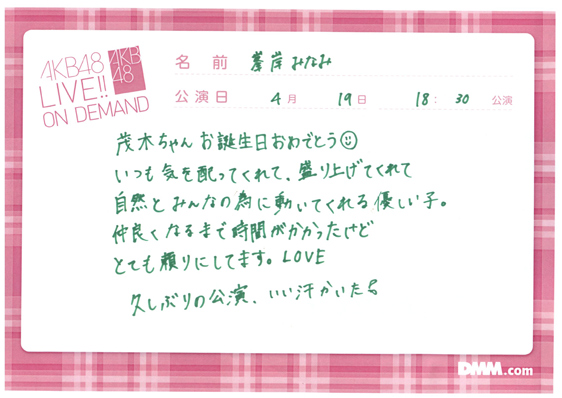 AKB48
LIVE!!
ON DEMAND
AKB
48
名 前 峯岸みなみ
公演日 4月 19日 18:30 公演
茂木ちゃんお誕生日おめでとう☺
いつも気を配ってくれて、盛り上げてくれて
自然とみんなの為に動いてくれる優しい子。
仲良くなるまで時間がかかったけど
とても頼りにしてます。LOVE
久しぶりの公演、いい汗かいた
DMM.com